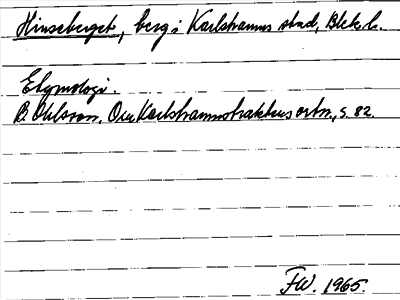 Hinseberget, berg i Karlshamns stad, Blek. l.
Etymologi.
B. Ohlsson, Om Karlshamnstraktens ortn., s. 82.
FW. 1965.